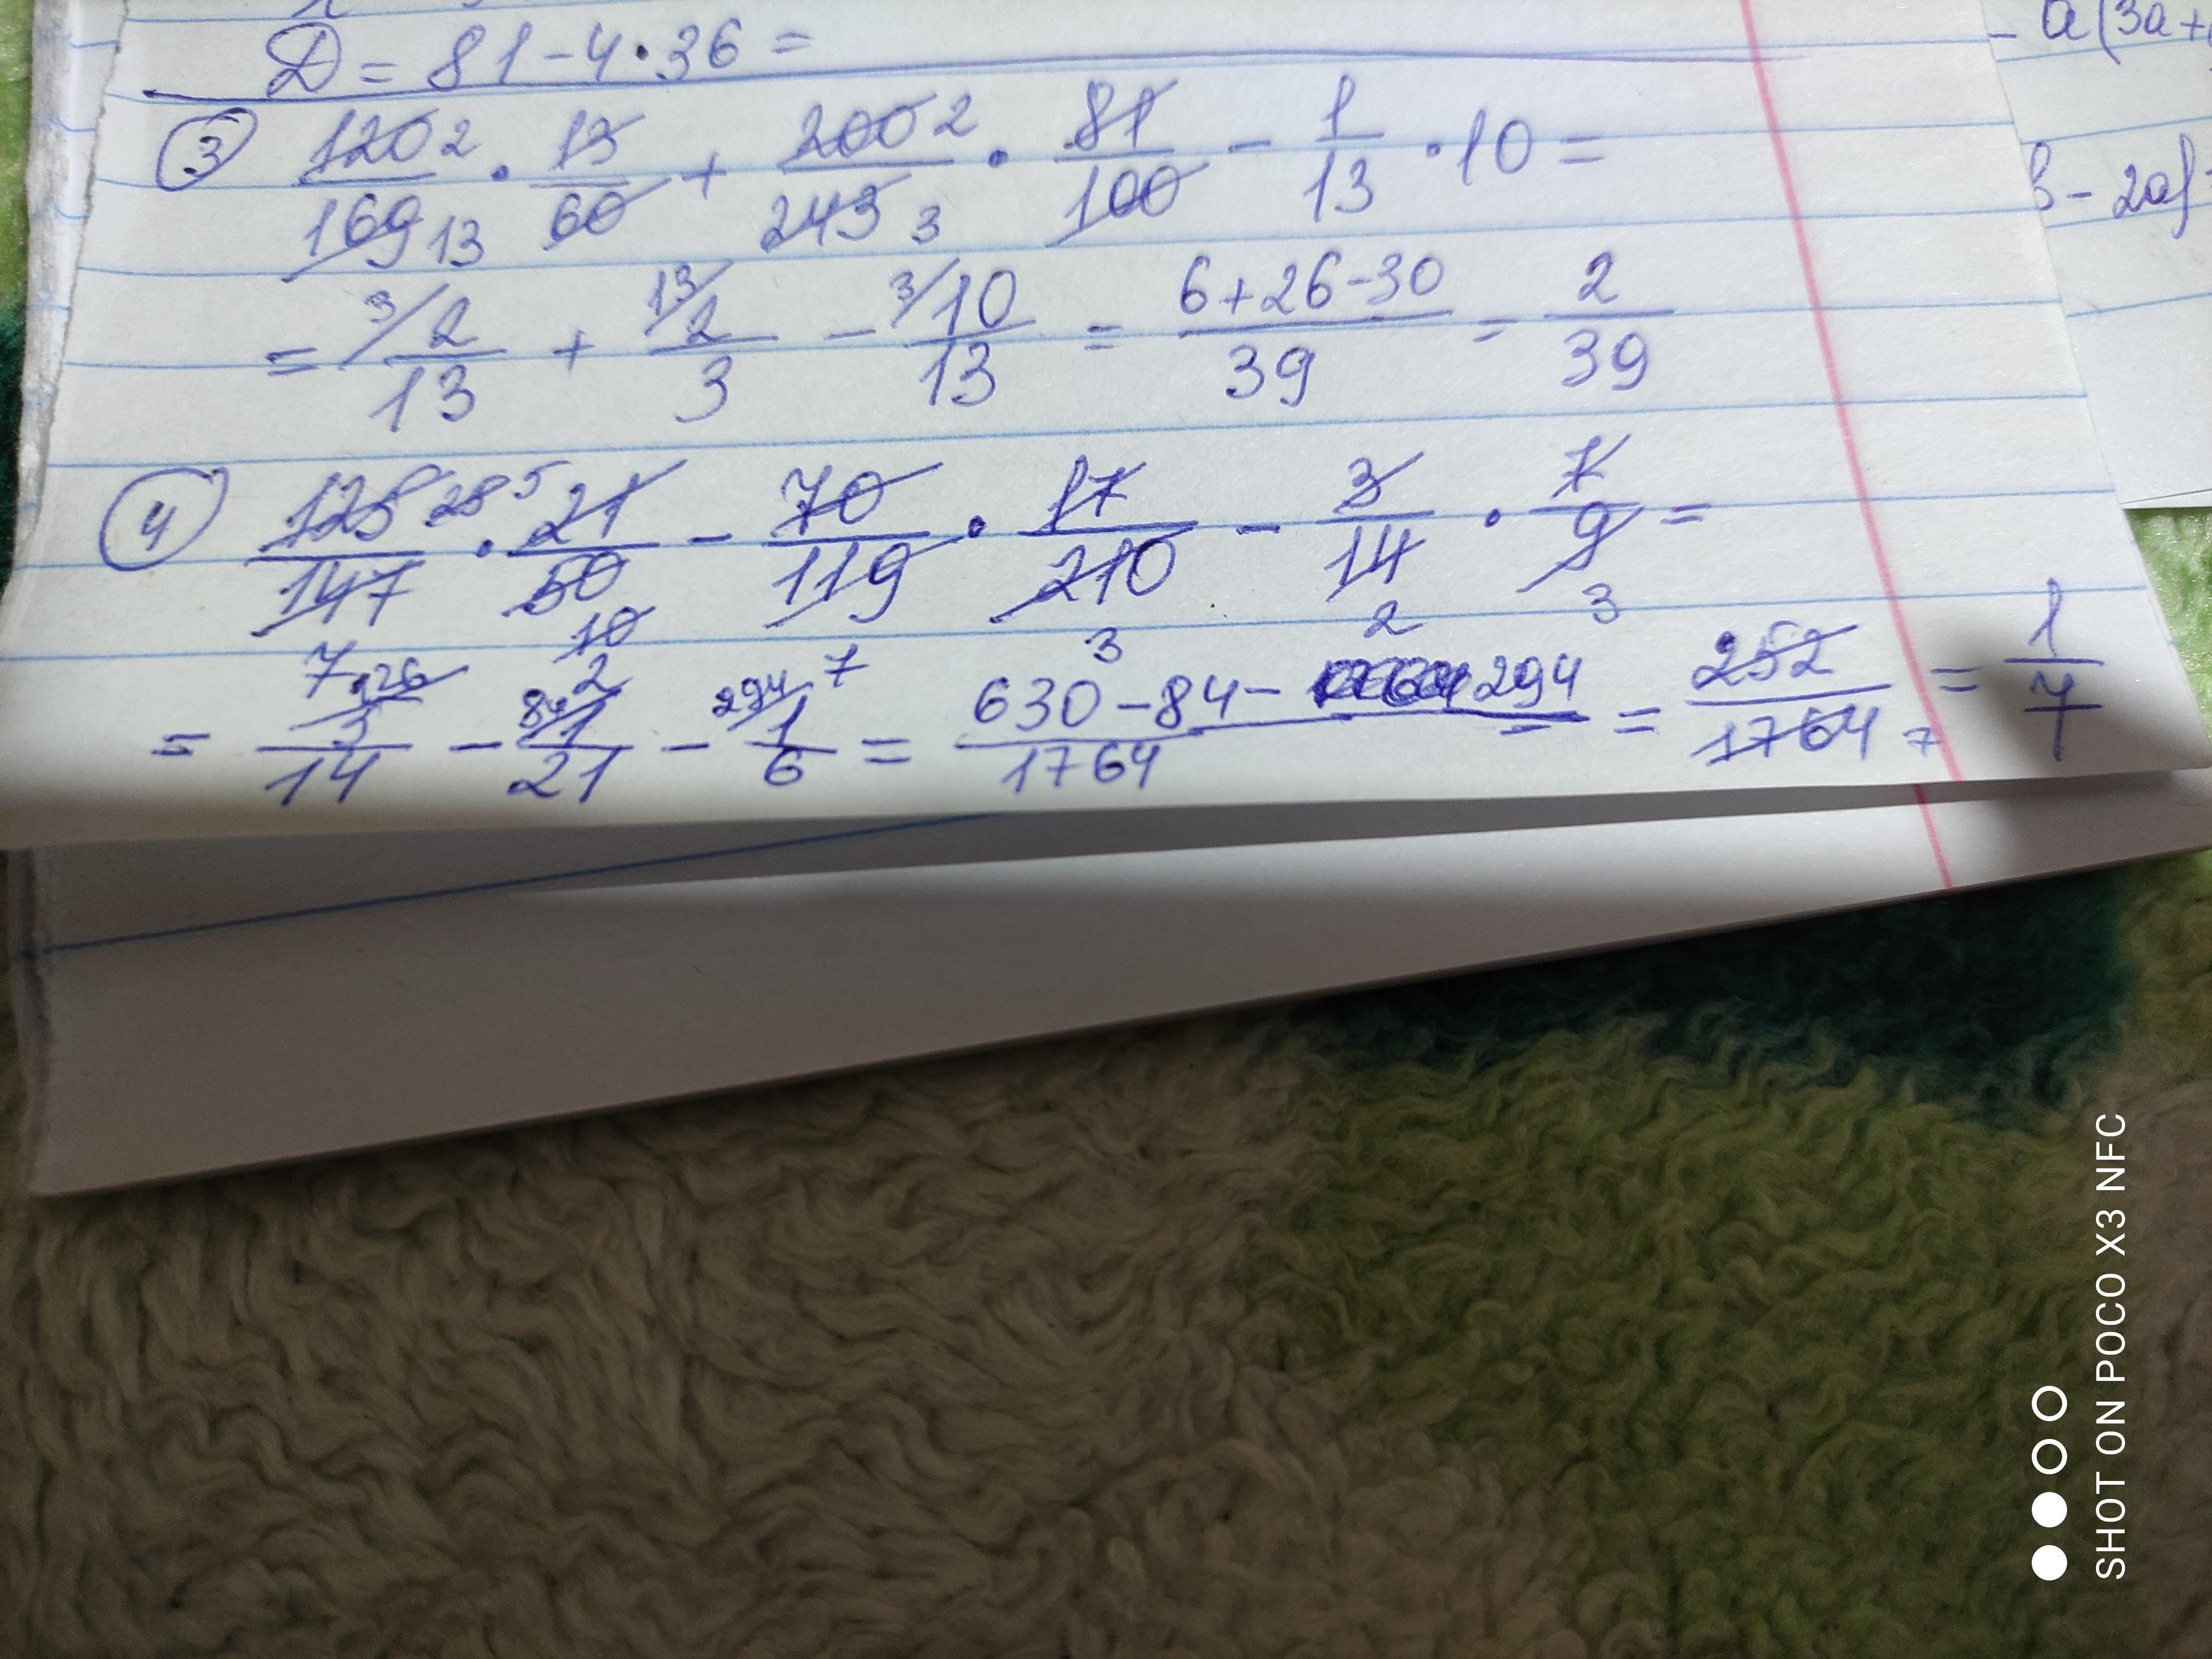 D = 81 - 4 · 36 =
- a(3a+
③ 120/169 · 13/60 + 200/243 · 81/100 - 1/13 · 10 =
2 13 2 3
- 2a)
= 3/ 2/13 + 13/ 2/3 - 3/ 10/13 = (6+26-30)/39 = 2/39
④ 125/147 · 21/50 - 70/119 · 17/210 - 3/14 · 7/9 =
25 5 7 10 2 3 2 3
= 5/14 - 1/21 - 1/6 = (630 - 84 - 294)/1764 = 252/1764 = 1/7
126 84 294 7 7
SHOT ON POCO X3 NFC